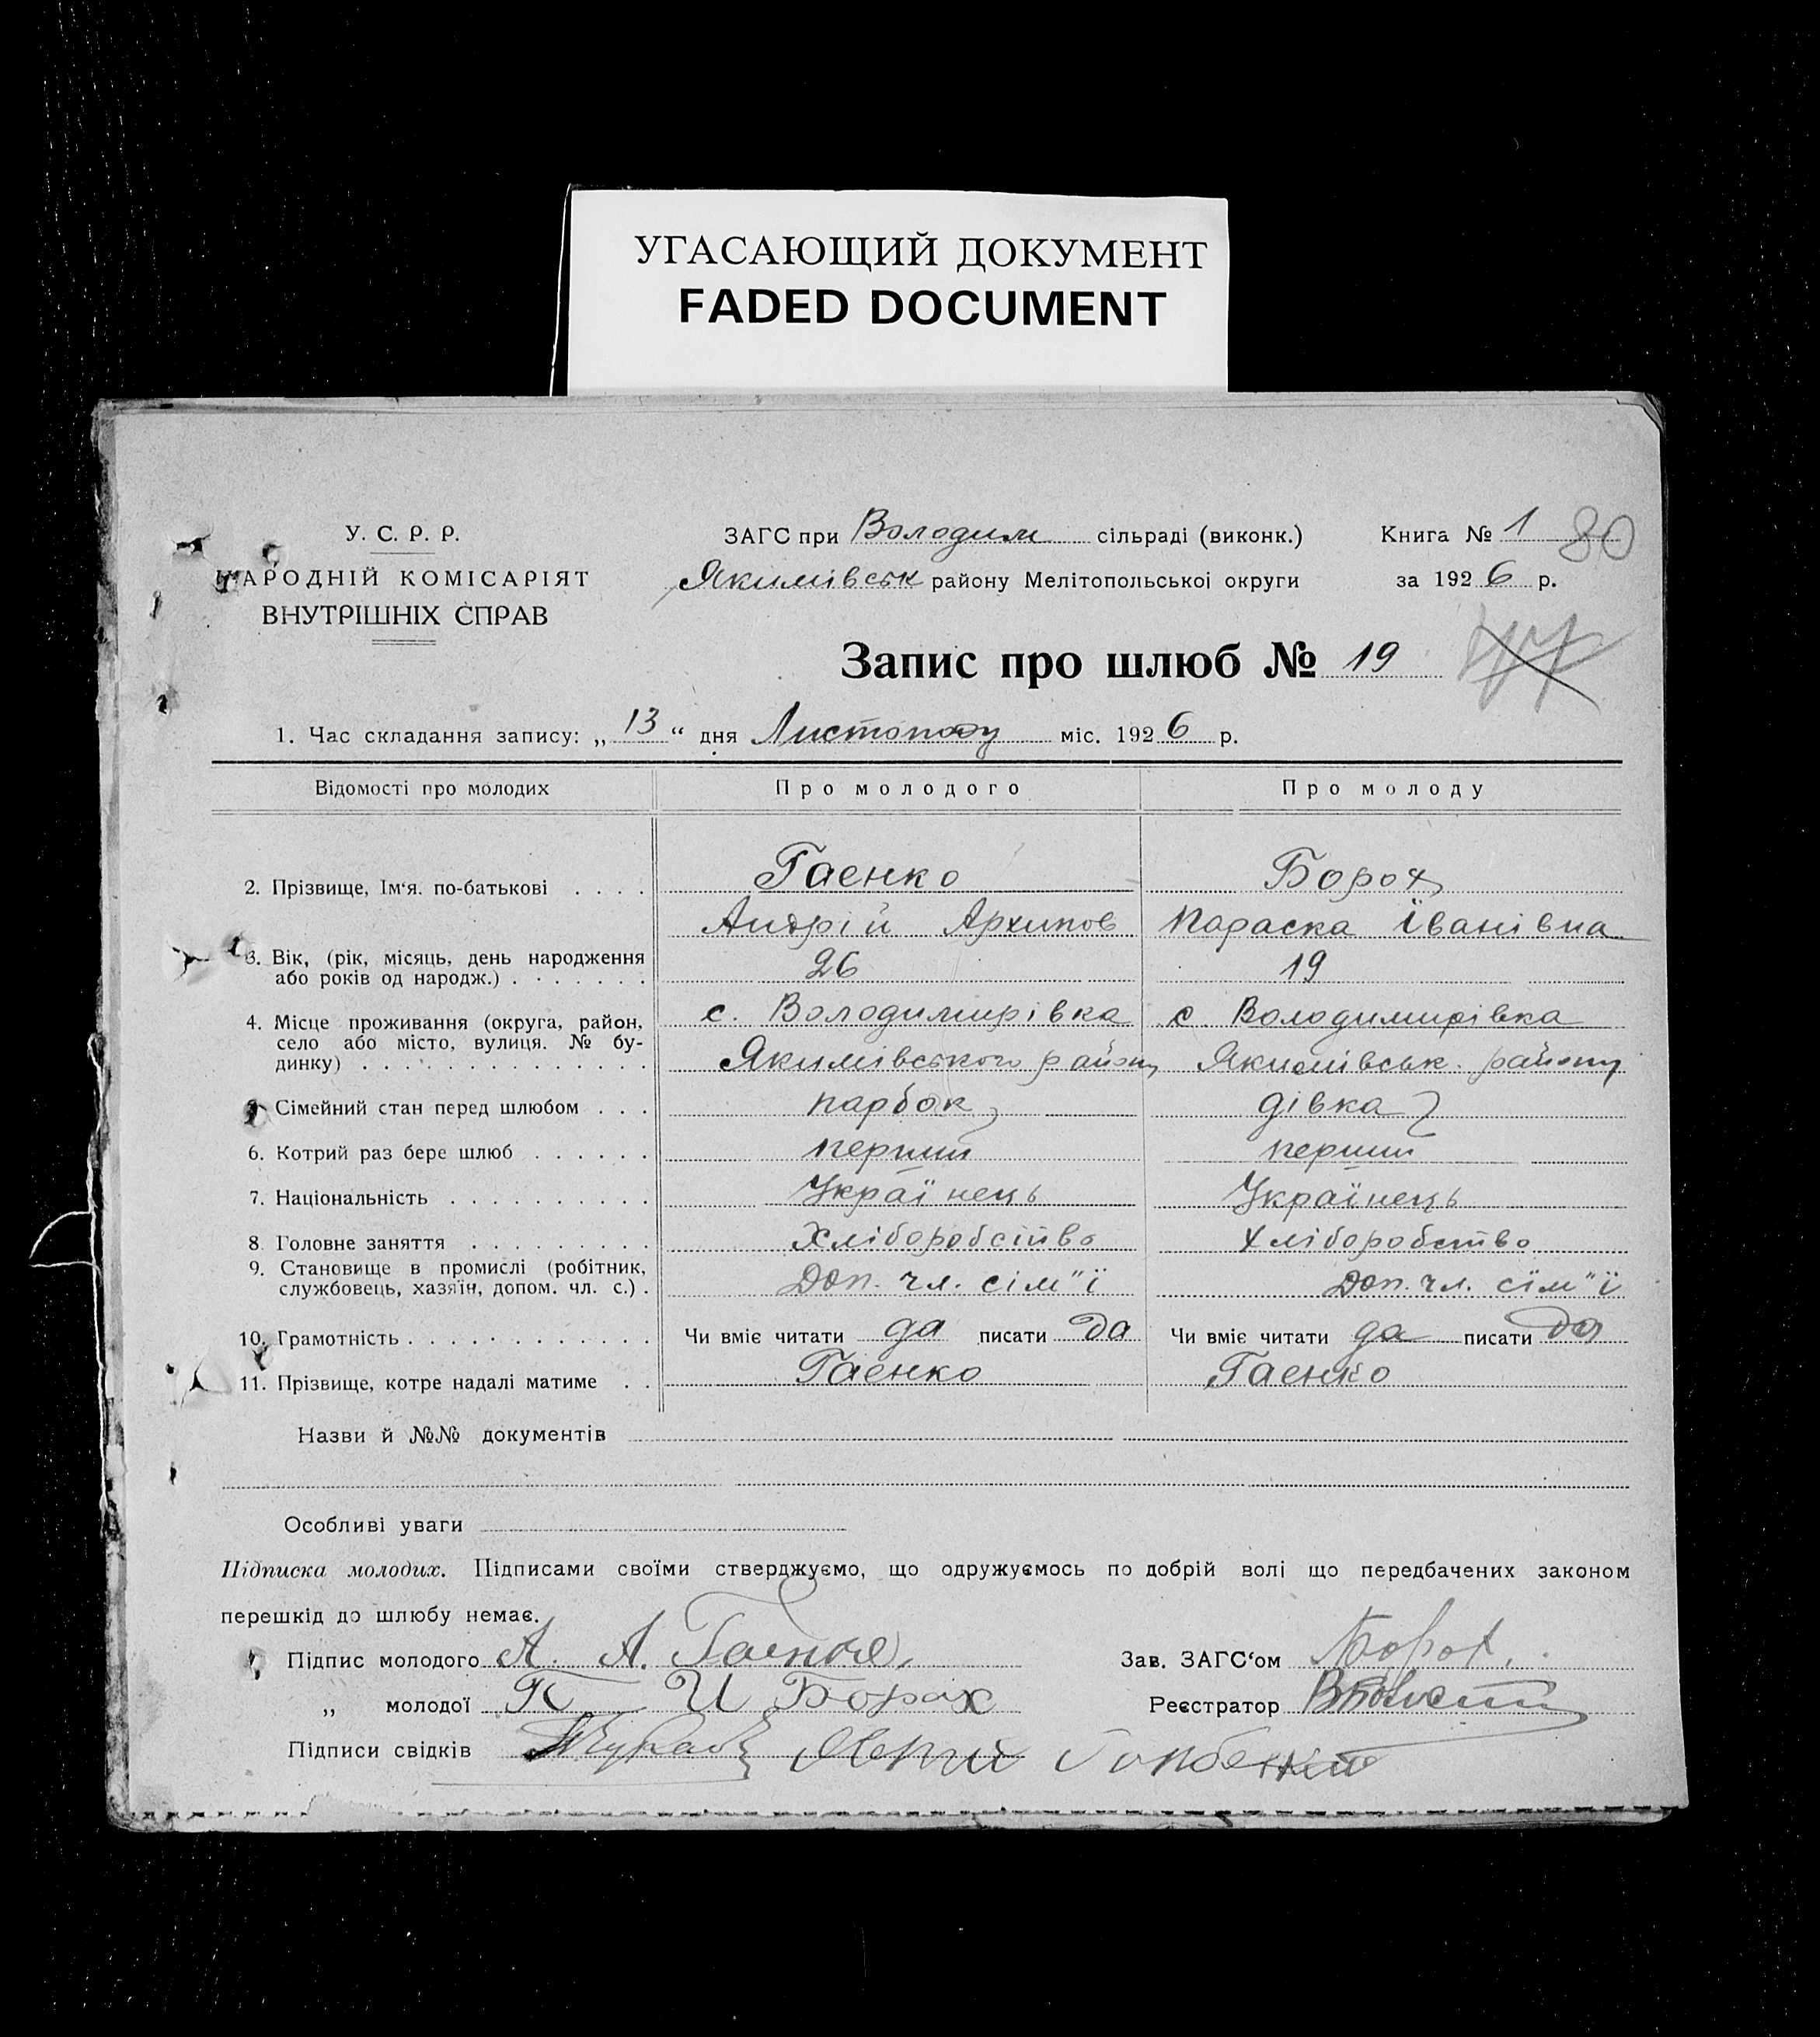 УГАСАЮЩИЙ ДОКУМЕНТ
FADED DOCUMENT
У. С. Р. Р.
НАРОДНІЙ КОМІСАРІЯТ
ВНУТРІШНІХ СПРАВ
ЗАГС при Володим сільраді (виконк.)
Якимівськ району Мелітопольської округи
Книга № 1 80
за 1926 р.
Запис про шлюб № 19
1. Час складання запису: „13“ дня Листопаду міс. 1926 р.
Відомості про молодих Про молодого Про молоду
2. Прізвище, Ім‘я. по-батькові . . . . Гаенко Борох
Андрій Архипов Параска Іванівна
3. Вік, (рік, місяць, день народження
або років од народж.) . . . . . . . 26 19
4. Місце проживання (округа, район,
село або місто, вулиця. № бу-
динку) . . . . . . . . . . . . . .
с. Володимирівка с Володимирівка
Якимівського району Якимівськ. району
5. Сімейний стан перед шлюбом . . . парбок дівка
6. Котрий раз бере шлюб . . . . . . перший перший
7. Національність . . . . . . . . . . Українець Українець
8. Головне заняття . . . . . . . . . Хліборобство Хліборобство
9. Становище в промислі (робітник,
службовець, хазяїн, допом. чл. с.) . Доп. чл. сім"ї Доп. чл. сім"ї
10. Грамотність . . . . . . . . . . . . Чи вміє читати да писати да Чи вміє читати да писати да
11. Прізвище, котре надалі матиме . . Гаенко Гаенко
Назви й №№ документів
Особливі уваги
Підписка молодих. Підписами своїми стверджуємо, що одружуємось по добрій волі що передбачених законом
перешкід до шлюбу немає.
Підпис молодого А. А. Гаенко Зав. ЗАГС‘ом Борох
„ молодої П И Борох Реєстратор
Підписи свідків